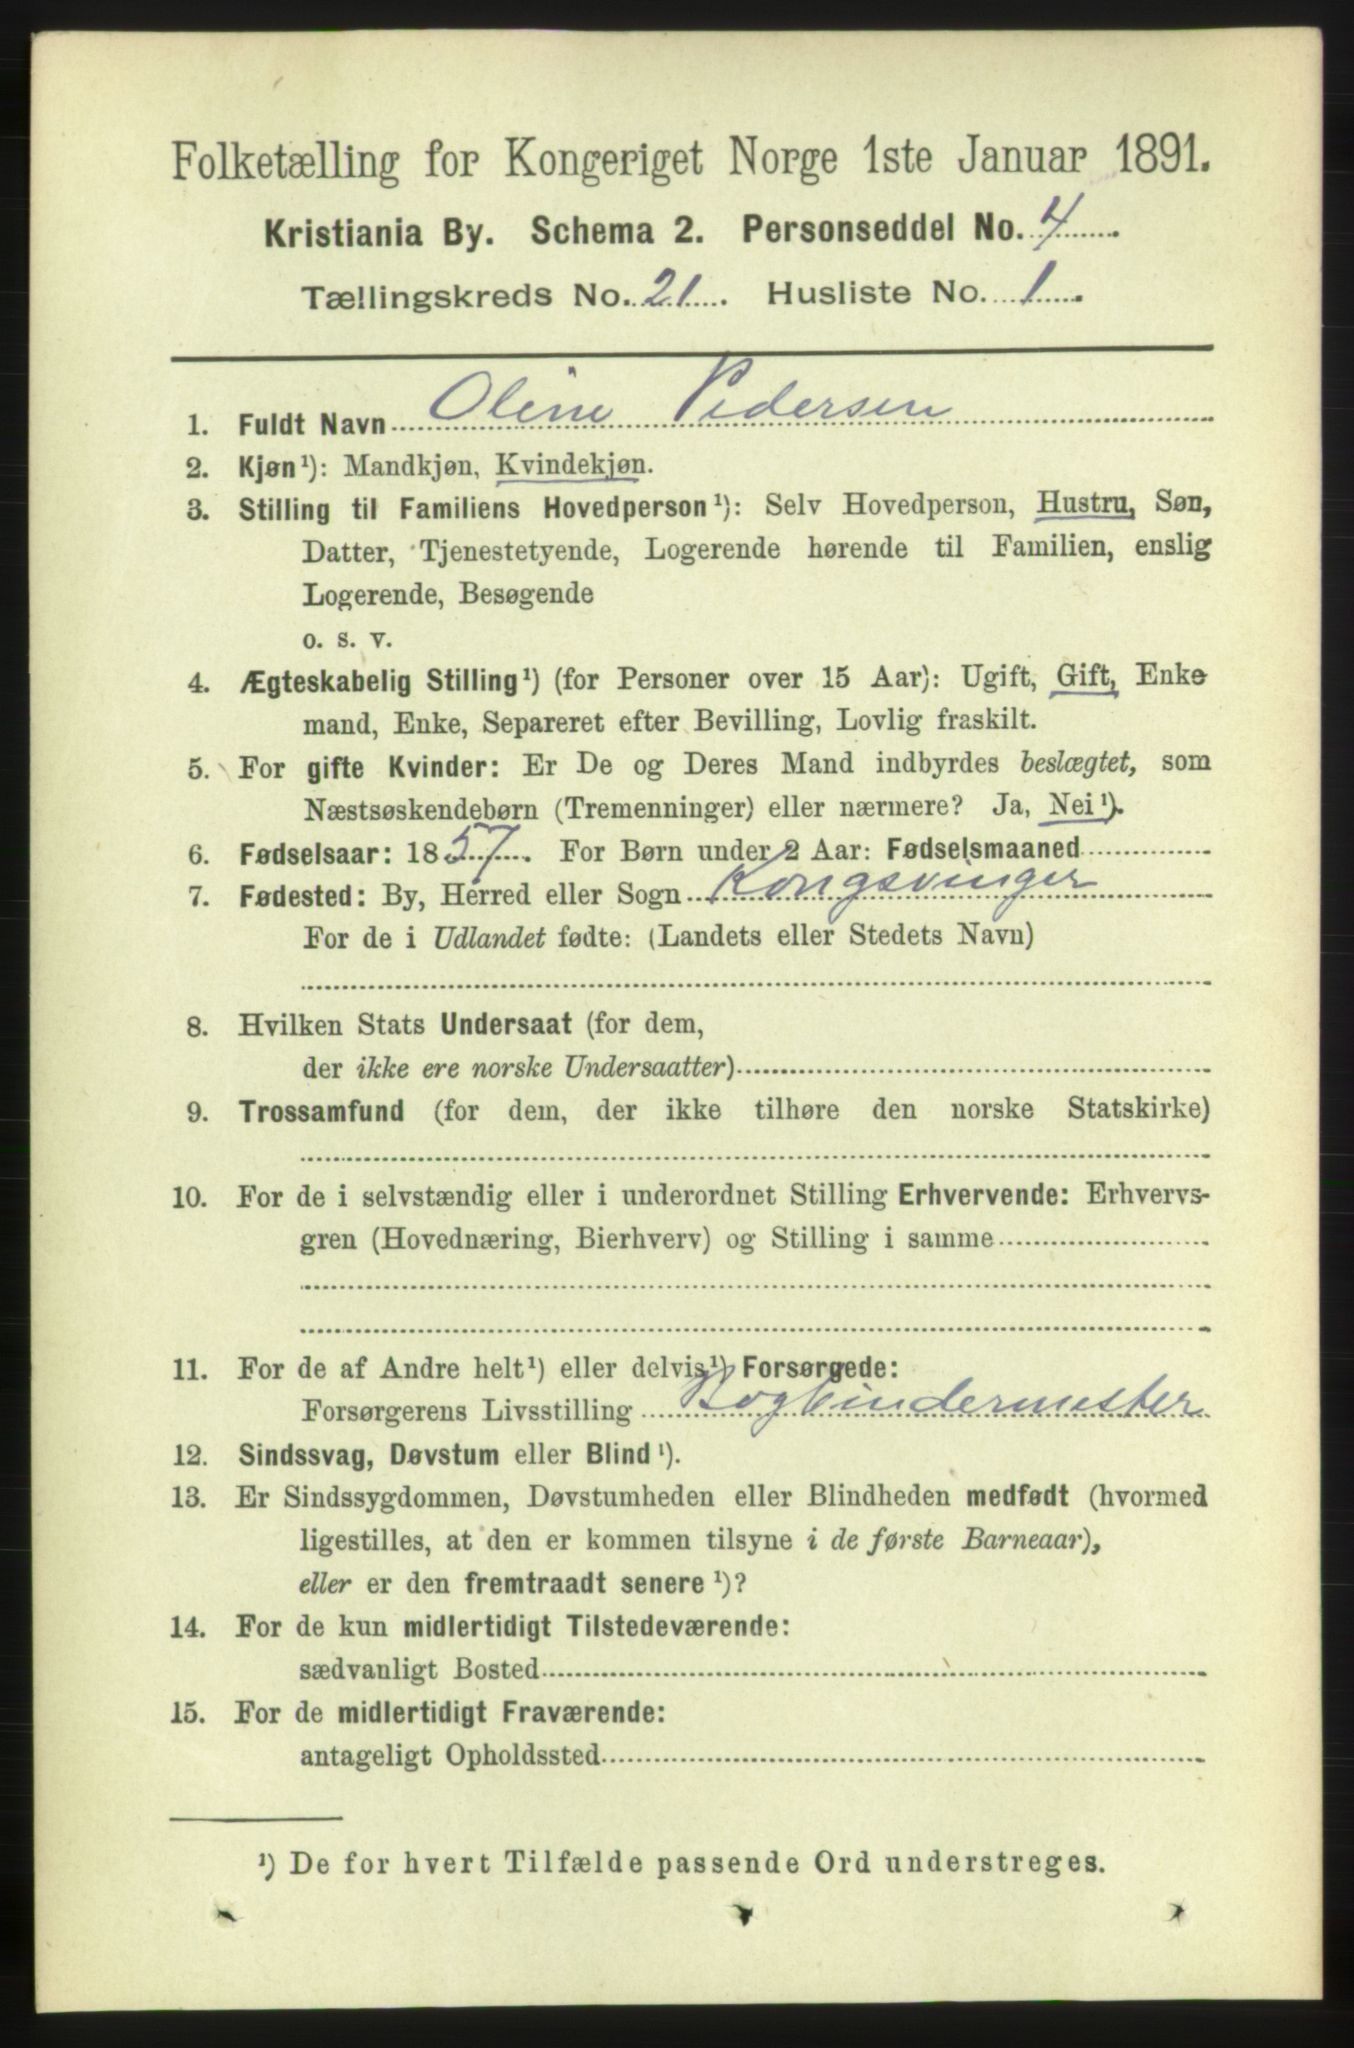 Folketælling for Kongeriget Norge 1ste Januar 1891.
Kristiania By. Schema 2. Personseddel No. 4
Tællingskreds No. 21. Husliste No. 1
1. Fuldt Navn Oline Pedersen
2. Kjøn¹): Mandkjøn, Kvindekjøn.
3. Stilling til Familiens Hovedperson¹): Selv Hovedperson, Hustru, Søn,
Datter, Tjenestetyende, Logerende hørende til Familien, enslig
Logerende, Besøgende
o. s. v.
4. Ægteskabelig Stilling¹) (for Personer over 15 Aar): Ugift, Gift, Enke
mand, Enke, Separeret efter Bevilling, Lovlig fraskilt.
5. For gifte Kvinder: Er De og Deres Mand indbyrdes beslægtet, som
Næstsøskendebørn (Tremenninger) eller nærmere? Ja, Nei¹).
6. Fødselsaar: 1857. For Børn under 2 Aar: Fødselsmaaned
7. Fødested: By, Herred eller Sogn Kongsvinger
For de i Udlandet fødte: (Landets eller Stedets Navn)
8. Hvilken Stats Undersaat (for dem,
der ikke ere norske Undersaatter)
9. Trossamfund (for dem, der ikke tilhøre den norske Statskirke)
10. For de i selvstændig eller i underordnet Stilling Erhvervende: Erhvervs-
gren (Hovednæring, Bierhverv) og Stilling i samme
11. For de af Andre helt¹) eller delvis¹) Forsørgede:
Forsørgerens Livsstilling Bogbindermester
12. Sindssvag, Døvstum eller Blind¹).
13. Er Sindssygdommen, Døvstumheden eller Blindheden medfødt (hvormed
ligestilles, at den er kommen tilsyne i de første Barneaar),
eller er den fremtraadt senere¹)?
14. For de kun midlertidigt Tilstedeværende:
sædvanligt Bosted
15. For de midlertidigt Fraværende:
antageligt Opholdssted
¹) De for hvert Tilfælde passende Ord understreges.